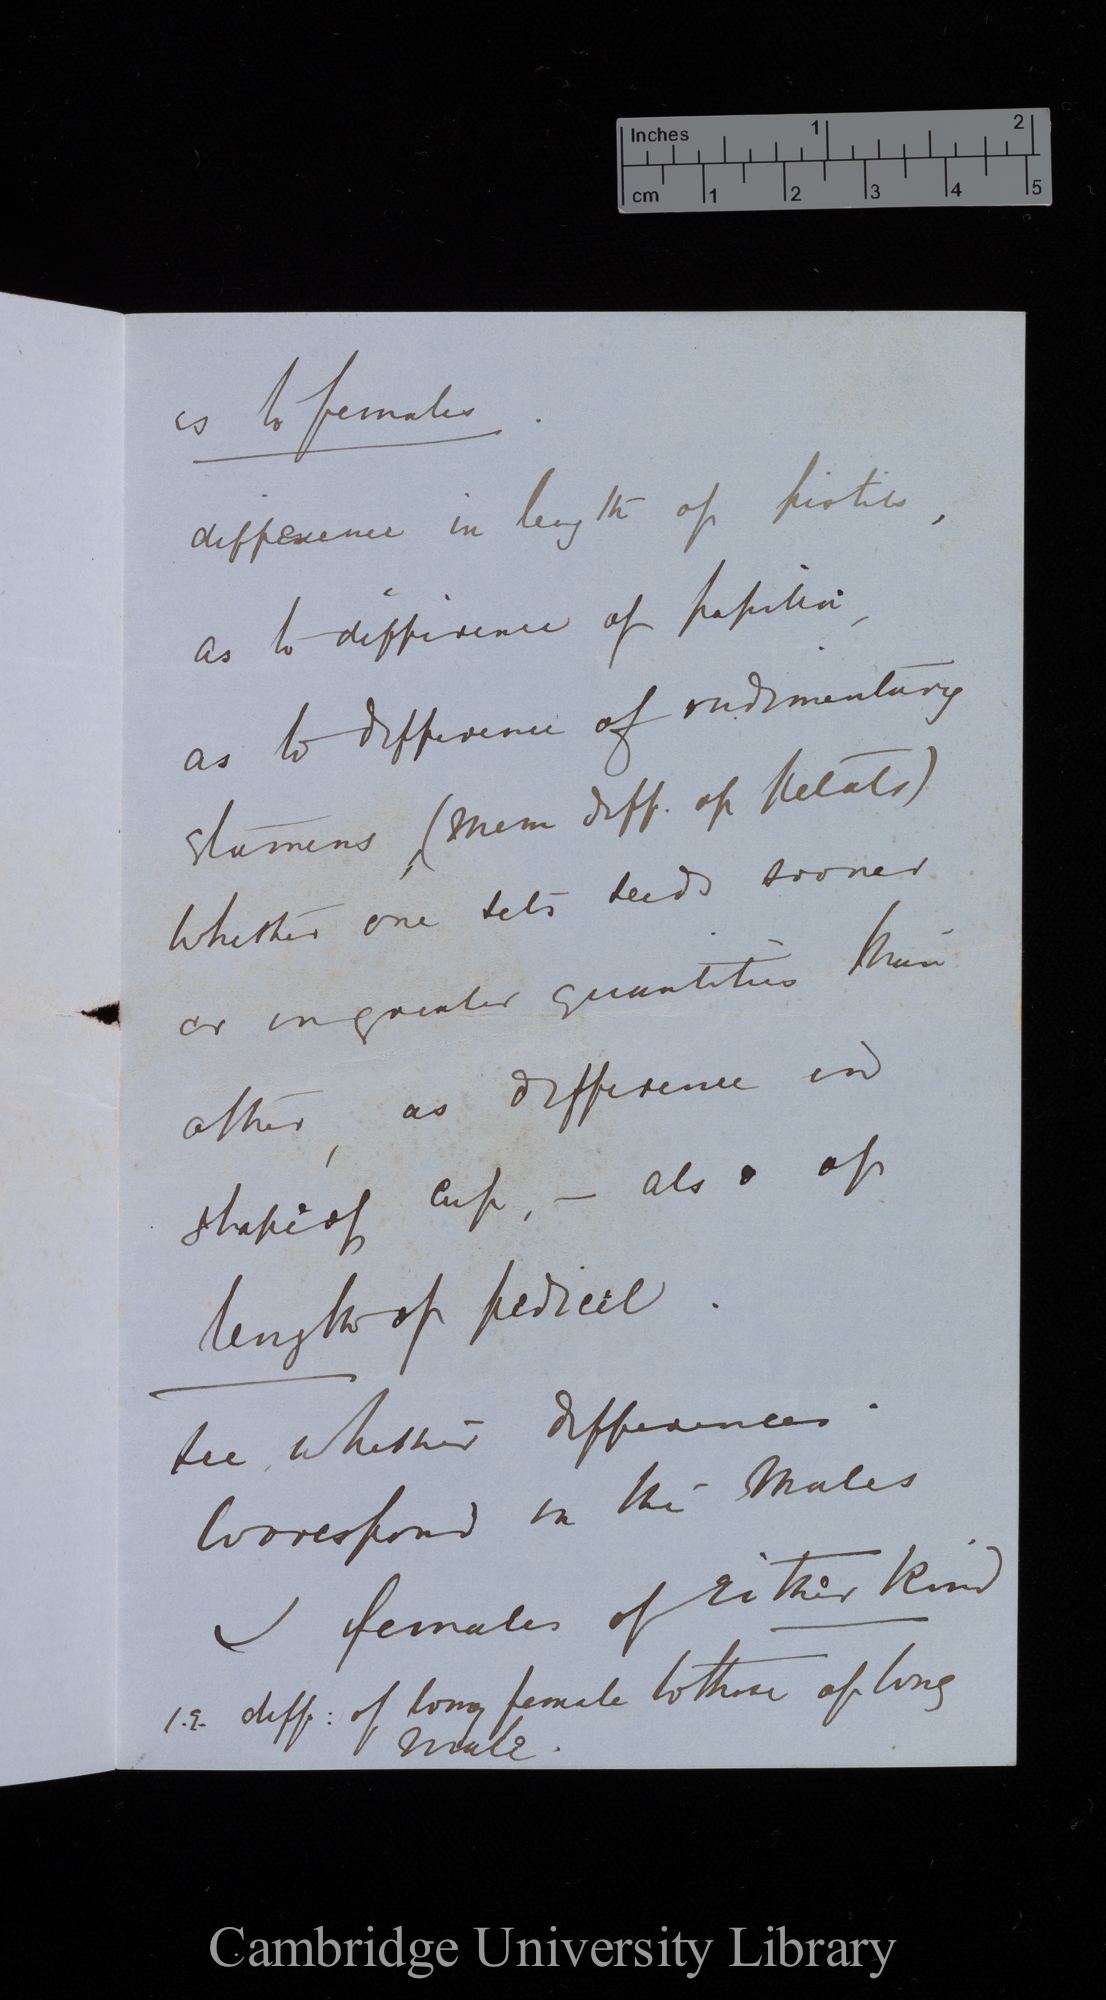 Inches 1 2
cm 1 2 3 4 5
as to females.
difference in length of pistils,
as to difference of papillæ,
as to difference of rudimentary
stamens, (Mem diff. of Petals)
Whether one sets seeds sooner
or in greater quantities than
other, as difference in
shape of cup, — also of
length of pedicel.
See whether differences
correspond in the Males
& females of Either Kind
i.e. diff: of long female to those of long
Male.
Cambridge University Library